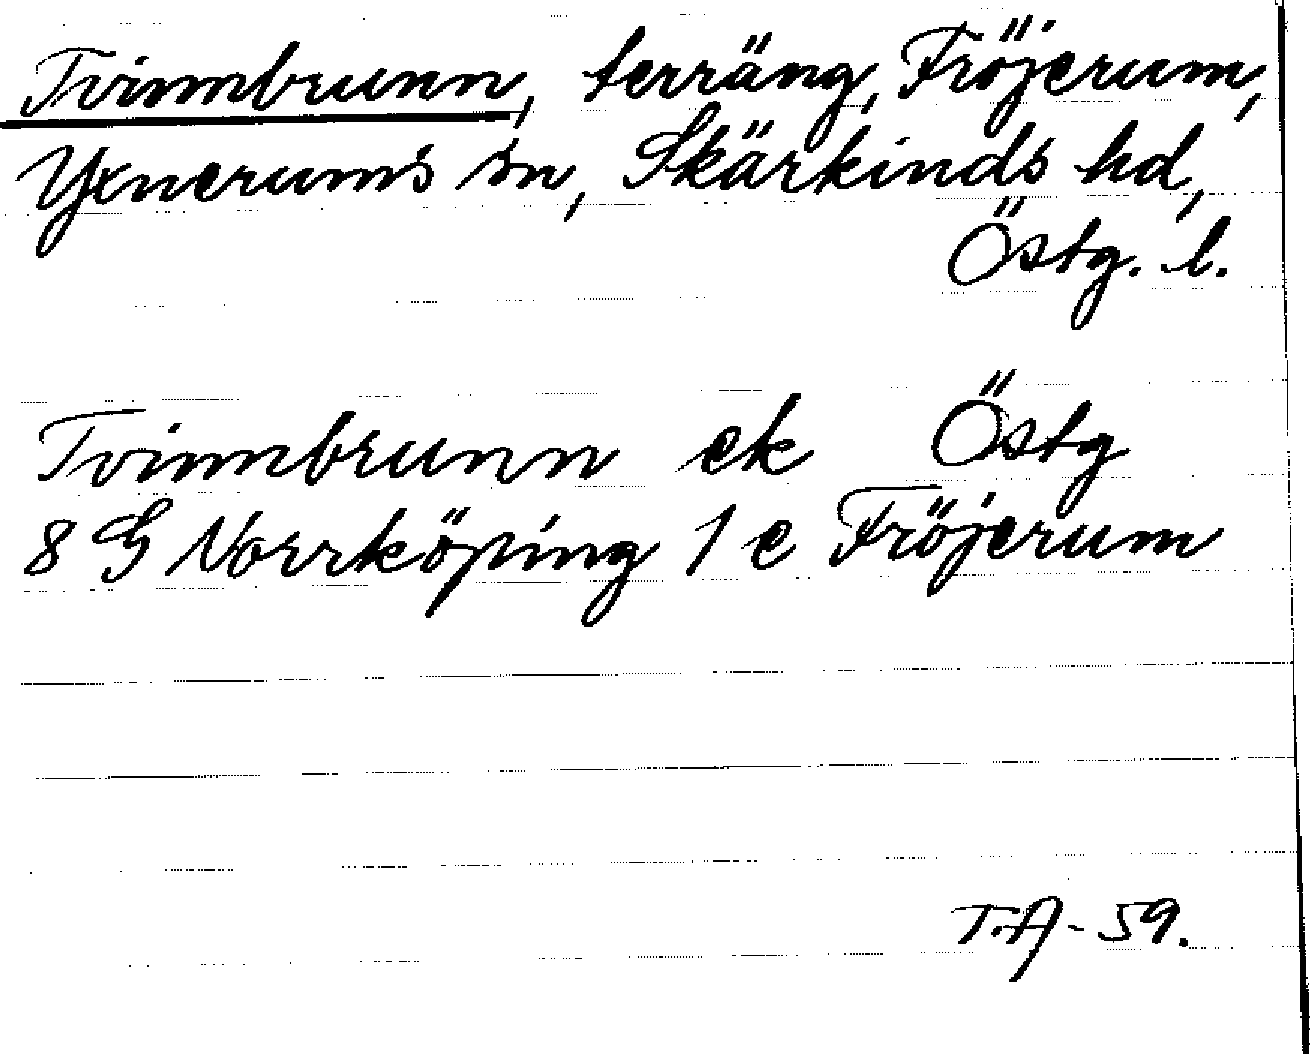 Tvinnbrunn, terräng, Fröjerum,
Yxnerums sn, Skärkinds hd,
Östg. l.
Tvinnbrunn ek Östg
8 G Norrköping 1 e Fröjerum
T.A-59.